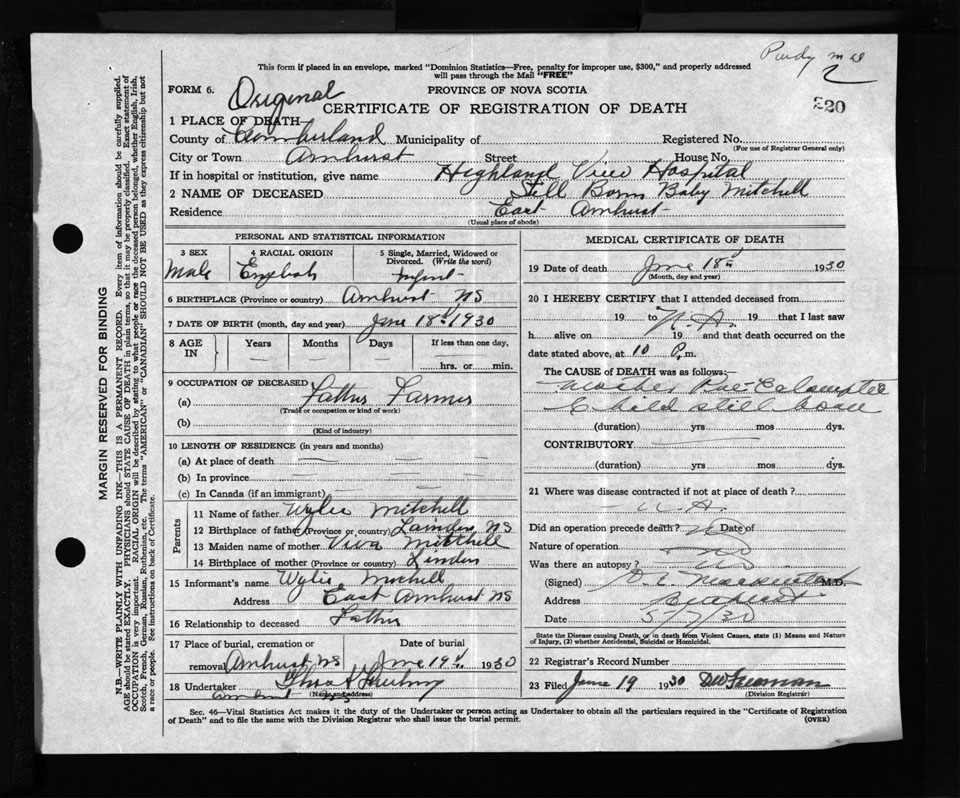 This form if placed in an envelope, marked "Dominion Statistics—Free, penalty for improper use, $300," and properly addressed
will pass through the Mail "FREE"
Purdy
2
FORM 6.
Original
PROVINCE OF NOVA SCOTIA
CERTIFICATE OF REGISTRATION OF DEATH
220
1 PLACE OF DEATH—
County of Cumberland Municipality of Registered No.
(For use of Registrar General only)
City or Town Amhurst Street House No.
If in hospital or institution, give name Highland View Hospital
2 NAME OF DECEASED Still Born Baby Mitchell
Residence East Amhurst
(Usual place of abode)
PERSONAL AND STATISTICAL INFORMATION
3 SEX 4 RACIAL ORIGIN 5 Single, Married, Widowed or Divorced. (Write the word)
Male English Infant
6 BIRTHPLACE (Province or country) Amhurst NS
7 DATE OF BIRTH (month, day and year) June 18th/1930
8 AGE IN Years Months Days If less than one day,
— — — hrs. or min.
9 OCCUPATION OF DECEASED
(a) Father Farmer
(Trade or occupation or kind of work)
(b)
(Kind of industry)
10 LENGTH OF RESIDENCE (in years and months)
(a) At place of death — —
(b) In province — —
(c) In Canada (if an immigrant) — —
Parents
11 Name of father Wylie Mitchell
12 Birthplace of father (Province or country) Linden NS
13 Maiden name of mother Viva Mitchell
14 Birthplace of mother (Province or country) Linden
15 Informant's name Wylie Mitchell
Address East Amhurst NS
16 Relationship to deceased Father
17 Place of burial, cremation or Date of burial
removal Amhurst NS June 19th 1930
18 Undertaker
(Name and address)
MEDICAL CERTIFICATE OF DEATH
19 Date of death June 18th 1930
(Month, day and year)
20 I HEREBY CERTIFY that I attended deceased from
19 to N.A. 19 that I last saw
h alive on 19 and that death occurred on the
date stated above, at 10 P.m.
The CAUSE of DEATH was as follows:—
Mother Pre-Eclamptic
Child still born
(duration) yrs mos dys.
CONTRIBUTORY
(duration) yrs mos dys.
21 Where was disease contracted if not at place of death?
N.A.
Did an operation precede death? No Date of
Nature of operation
Was there an autopsy? No
(Signed) M.D.
Address
Date 5/7/30
State the Disease causing Death, or in death from Violent Causes, state (1) Means and Nature
of Injury, (2) whether Accidental, Suicidal or Homicidal.
22 Registrar's Record Number
23 Filed June 19 1930 DW Freeman
(Division Registrar)
Sec. 46—Vital Statistics Act makes it the duty of the Undertaker or person acting as Undertaker to obtain all the particulars required in the "Certificate of Registration
of Death" and to file the same with the Division Registrar who shall issue the burial permit.
(OVER)
MARGIN RESERVED FOR BINDING
N.B.—WRITE PLAINLY WITH UNFADING INK—THIS IS A PERMANENT RECORD. Every item of information should be carefully supplied.
AGE should be stated EXACTLY. PHYSICIANS should STATE CAUSE OF DEATH in plain terms, so that it may be properly classified. Exact statement of
OCCUPATION is very important. RACIAL ORIGIN will be described by stating to what people or race the deceased person belonged, whether English, Irish,
Scotch, French, German, Russian, Ruthenian, etc. The terms "AMERICAN" or "CANADIAN" SHOULD NOT BE USED as they express citizenship but not
a race or people. See instructions on back of Certificate.